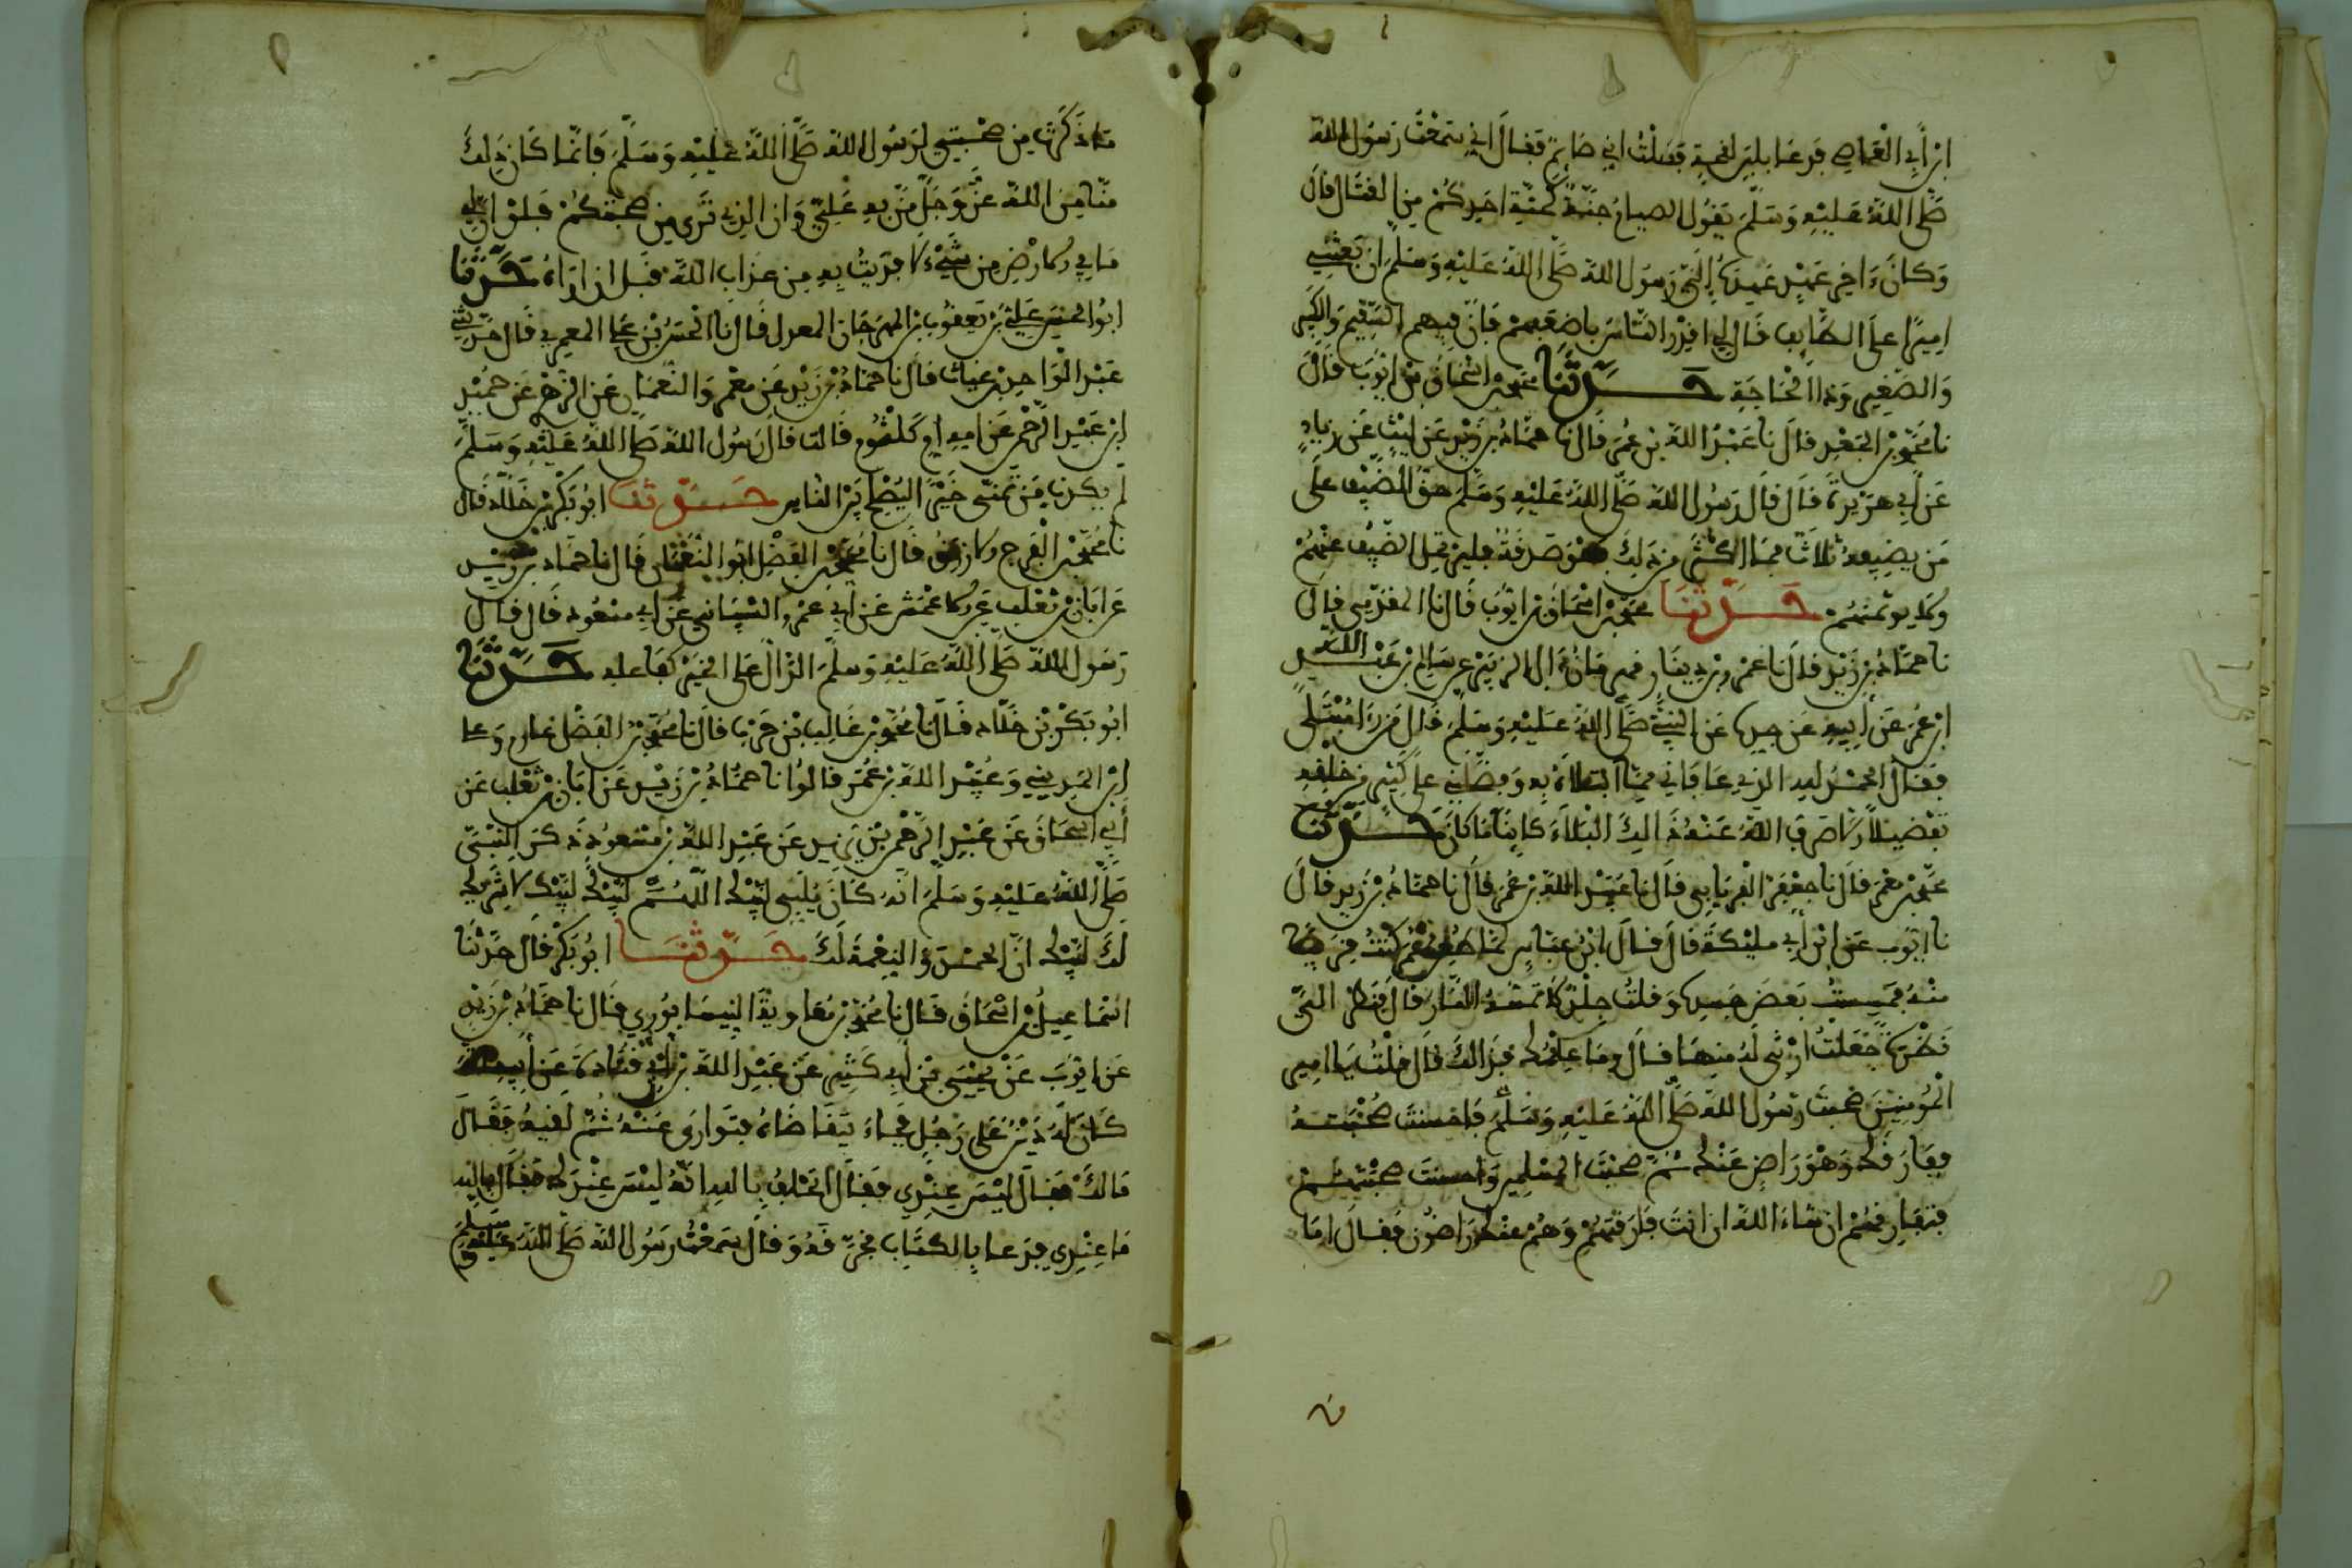 ابن أبي العاصي فدعا بلبن لقحة فقلت اني صائم فقال اني سمعت رسول الله
صلى الله عليه وسلم يقول الصيام جنة كجنة احدكم من القتال قال
وكان ءاخر عهد عهده إلي رسول الله صلى الله عليه وسلم ان بعثني
اميرا على الطايف قال لي اقدر الناس باضعفهم فان فيهم السقيم والكبير
والصغير وذا الحاجة حدثنا محمد بن اسحاق بن ايوب قال
نا محمد بن الجعد قال نا عبد الله بن عمر قال نا حماد بن زيد عن ليث عن زياد
عن أبي هريرة قال قال رسول الله صلى الله عليه وسلم حق الضيف على
من يضيفه ثلاث فما اكثر من ذلك فهو صدقة فليرتحل الضيف عنهم
ولا يوثمهم حدثنا محمد بن اسحاق بن ايوب قال نا المقدمي قال
نا حماد بن زيد قال نا عمرو بن دينار قهرمان ءال الزبير عن سالم بن عبد الله
ابن عمر عن أبيه عن جده عن النبي صلى الله عليه وسلم قال من رءا مبتلى
فقال الحمد لله الذي عافاني مما ابتلاه به وفضلني على كثير من خلقه
تفضيلا الا صرف الله عنه ذالك البلاء كاينا ما كان حدثنا
محمد بن معمر قال نا جعفر الفريابي قال نا عبيد الله بن عمر قال نا حماد بن زيد قال
نا ايوب عن ابن أبي مليكة قال قال ابن عباس لما طعن عمر كنت قريبا
منه فمسست بعض جسده وقلت جلد لا تمسه النار قال فنظر الي
نظرة جعلت ارثي له منها قال وما علمك بذالك قال قلت يا امير
المومنين صحبت رسول الله صلى الله عليه وسلم فاحسنت صحبته
ففارقك وهو راض عنك ثم صحبت المسلمين واحسنت صحبتهم
فتفارقهم ان شاء الله ان انت فارقتهم وهم عنك راضون فقال اما
ما ذكرت من صحبتي لرسول الله صلى الله عليه وسلم فانما كان ذلك
منا من الله عز وجل من به علي وان الذي ترى من صحبتكم فلو ان لي
ما في الارض من شيء لافتديت به من عذاب الله قبل ان اراه حدثنا
ابو الحسين علي بن يعقوب بن المهرجان المعدل قال نا الحسن بن علي المعمري قال حدثني
عبد الواحد بن غياث قال نا حماد بن زيد عن معمر والنعمان عن الزهري عن حميد
ابن عبد الرحمن عن امه ام كلثوم قالت قال رسول الله صلى الله عليه وسلم
لم يكذب من تمنى خيرا ليصلح بين الناس حدثنا ابو بكر بن خلاد قال
نا محمد بن الفرج الازرق قال نا محمد بن الفضل ابو النعمان قال نا حماد بن زيد
عن ابان بن تغلب عن الاعمش عن أبي عمرو الشيباني عن أبي مسعود قال قال
رسول الله صلى الله عليه وسلم الدال على الخير كفاعله حدثنا
ابو بكر بن خلاد قال نا محمد بن غالب بن حرب قال نا محمد بن الفضل عارم وعلي
ابن المديني وعبيد الله بن عمر قالوا نا حماد بن زيد عن ابان بن تغلب عن
أبي اسحاق عن عبد الرحمن بن يزيد عن عبد الله بن مسعود ذكر النبي
صلى الله عليه وسلم انه كان يلبي لبيك اللهم لبيك لبيك لا شريك
لك لبيك ان الحمد والنعمة لك حدثنا ابو بكر قال حدثنا
اسماعيل بن اسحاق قال نا محمد بن معاوية النيسابوري قال نا حماد بن زيد
عن ايوب عن يحيى بن أبي كثير عن عبد الله بن أبي قتادة عن أبيه
كان له دين على رجل فجاء يتقاضاه فتوارى عنه ثم لقيه فقال
مالك فقال ليس عندي فقال اتحلف بالله انه ليس عندك فقال بالله
ما عندي فدعا بالكتاب فخرقه وقال سمعت رسول الله صلى الله عليه وسلم